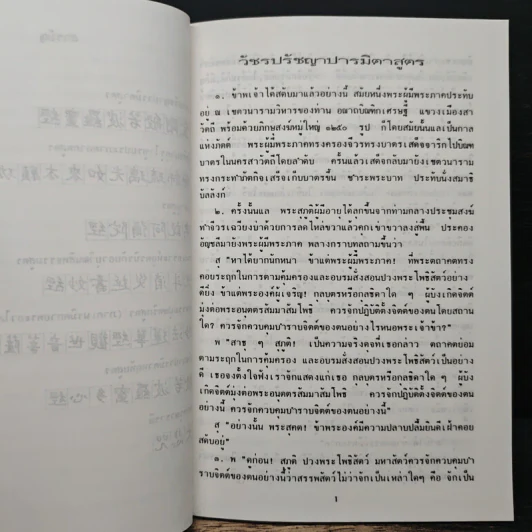 วัชรปรัชญาปารมิตาสูตร
๑. ข้าพเจ้าได้สดับมาแล้วอย่างนี้ สมัยหนึ่งพระผู้มีพระภาคประทับ
อยู่ ณ เชตวนารามวิหารของท่าน อนาถบิณฑิกเศรษฐี แขวงเมืองสา
วัตถี พร้อมด้วยภิกษุสงฆ์หมู่ใหญ่ ๑๒๕๐ รูป ก็โดยสมัยนั้นแลเป็นกาล
แห่งภัตต์ พระผู้มีพระภาคทรงครองจีวรทรงบาตร เสด็จจาริกไปบิณฑ
บาตรในนครสาวัตถีโดยลำดับ ครั้นแล้วเสด็จกลับมายังเชตวนาราม
ทรงกระทำภัตกิจเสร็จเก็บบาตรขึ้น ชำระพระบาท ประทับนั่งสมาธิ
บัลลังก์
๒. ครั้งนั้นแล พระสุภูติผู้มีอายุได้ลุกขึ้นจากท่ามกลางประชุมสงฆ์
ทำจีวรเฉวียงบ่าด้วยการลดไหล่ขวาแล้วคุกเข่าขวาลงสู่พื้น ประคอง
อัญชลีมายังพระผู้มีพระภาค พลางกราบทูลถามขึ้นว่า
สุ "หาได้ยากนักหนา ข้าแต่พระผู้มีพระภาค! ที่พระตถาคตทรง
คอยระลึกในการตามคุ้มครองและอบรมสั่งสอนปวงพระโพธิสัตว์อย่าง
ดียิ่ง ข้าแต่พระองค์ผู้เจริญ! กุลบุตรหรือกุลธิดาใด ๆ ผู้บังเกิดจิตต์
มุ่งต่อพระอนุตตรสัมมาสัมโพธิ ควรจักปฏิบัติตั้งจิตต์ของตนโดยสถาน
ใด? ควรจักควบคุมบำราบจิตต์ของตนอย่างไรหนอพระเจ้าข้า?"
พ "สาธุ ๆ สุภูติ! เป็นความจริงดุจที่เธอกล่าว ตถาคตย่อม
ตามระลึกในการคุ้มครอง และอบรมสั่งสอน พระโพธิสัตว์เป็นอย่าง
ดี เธอจงตั้งใจฟังเราจักแสดงแก่เธอ กุลบุตรหรือกุลธิดาใด ๆ ผู้บัง
เกิดจิตต์มุ่งต่อพระอนุตตรสัมมาสัมโพธิ ควรจักปฏิบัติตั้งจิตต์ของตน
อย่างนี้ ควรจักควบคุมบำราบจิตต์ของตนอย่างนี้"
สุ "อย่างนั้น พระสุคต! ข้าพระองค์มีความปลาบปลื้มยินดีเฝ้าคอย
สดับอยู่"
๓. พ "ดูก่อน! สุภูติ ปวงพระโพธิสัตว์ มหาสัตว์ควรจักควบคุมบำ
ราบจิตต์ของตนอย่างนี้ว่าสรรพสัตว์ไม่ว่าจักเป็นเหล่าใดๆ คือ จักเป็น
1